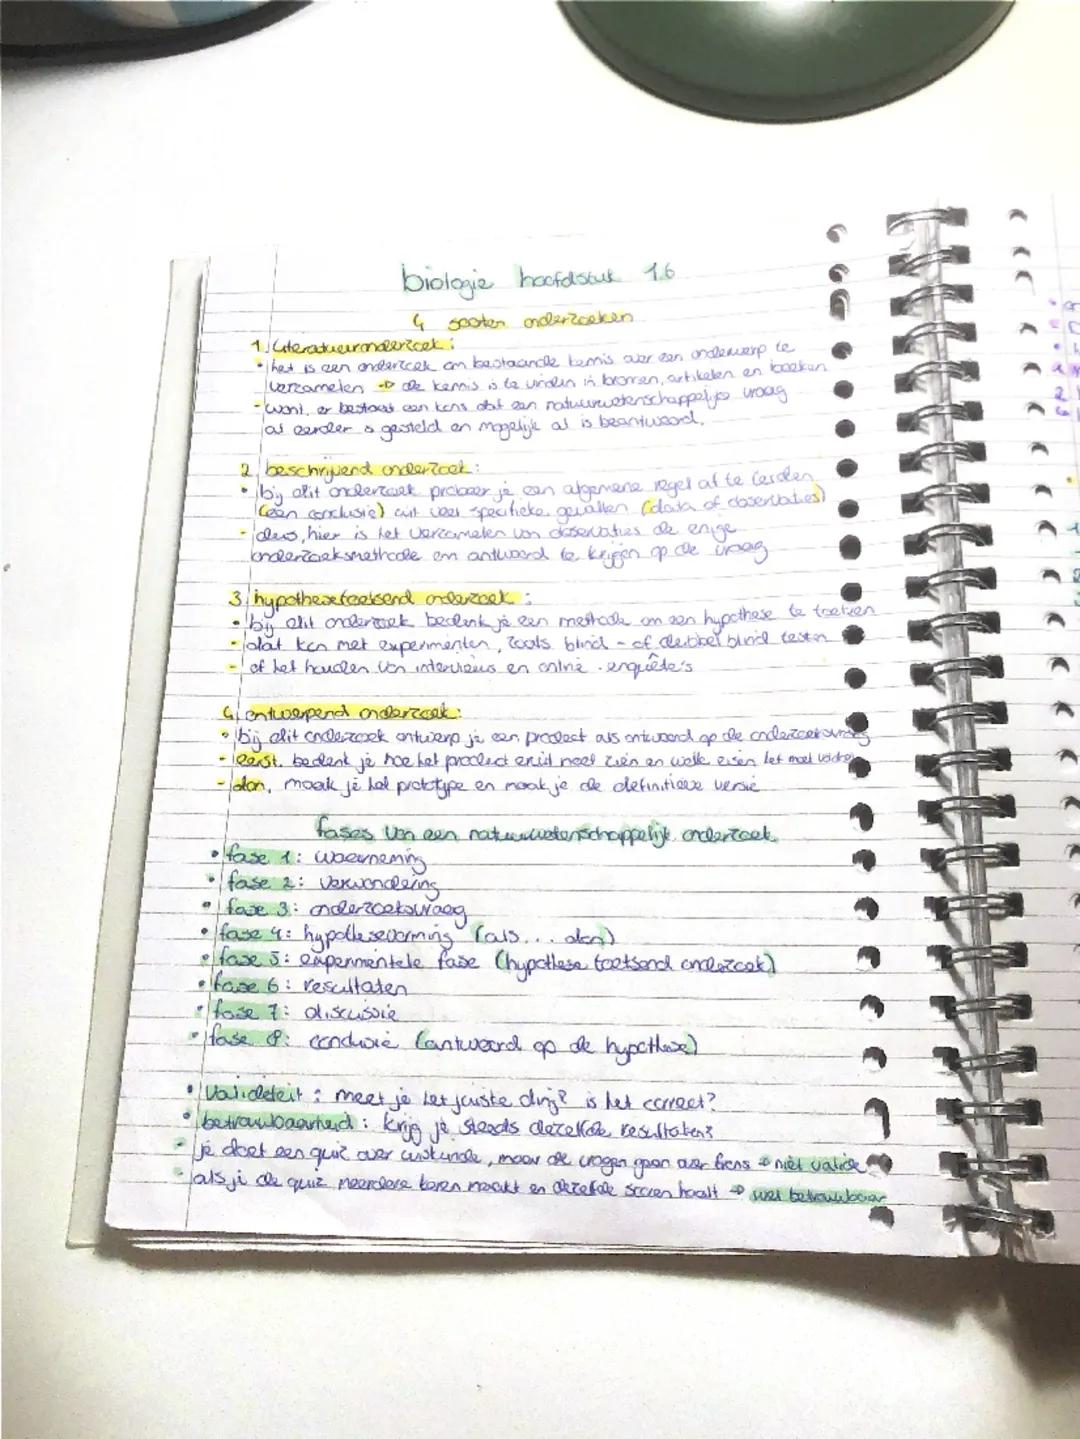 biologie hoofdstuk 1.6
4 soorten onderzoeken
1. literatuuronderzoek:
• het is een onderzoek om bestaande kennis over een onderwerp te
verzamelen → de kennis is te vinden in bronnen, artikelen en boeken
- want, er bestaat een kans dat een natuurwetenschappelijke vraag
al eerder is gesteld en mogelijk al is beantwoord.
2 beschrijvend onderzoek:
• bij dit onderzoek probeer je een algemene regel af te leiden
(een conclusie) uit veel specifieke gevallen (data of observaties)
- dus, hier is het verzamelen van observaties de enige
onderzoeksmethode om antwoord te krijgen op de vraag
3 hypothesetoetsend onderzoek:
• bij dit onderzoek bedenk je een methode om een hypothese te toetsen
- dat kan met experimenten, zoals blind- of dubbel blind testen
- of het houden van interviews en online enquête's
4 ontwerpend onderzoek:
• bij dit onderzoek ontwerp je een product als antwoord op de onderzoeksvraag
- eerst, bedenk je hoe het product eruit moet zien en welk eisen het moet
- dan, maak je het prototype en maak je de definitieve versie
fases van een natuurwetenschappelijk onderzoek
• fase 1: waarneming
• fase 2: verwondering
• fase 3: onderzoeksvraag
• fase 4: hypothesevorming (als... dan)
• fase 5: experimentele fase (hypothese toetsend onderzoek)
• fase 6: resultaten
• fase 7: discussie
• fase 8: conclusie (antwoord op de hypothese)
• Validiteit: meet je het juiste ding? is het correct?
• betrouwbaarheid: krijg je steeds dezelfde resultaten?
- je doet een quiz over wiskunde, maar de vragen gaan over frans → niet valide
- als je de quiz meerdere keren maakt en dezelfde scoren haalt → wel betrouwbaar